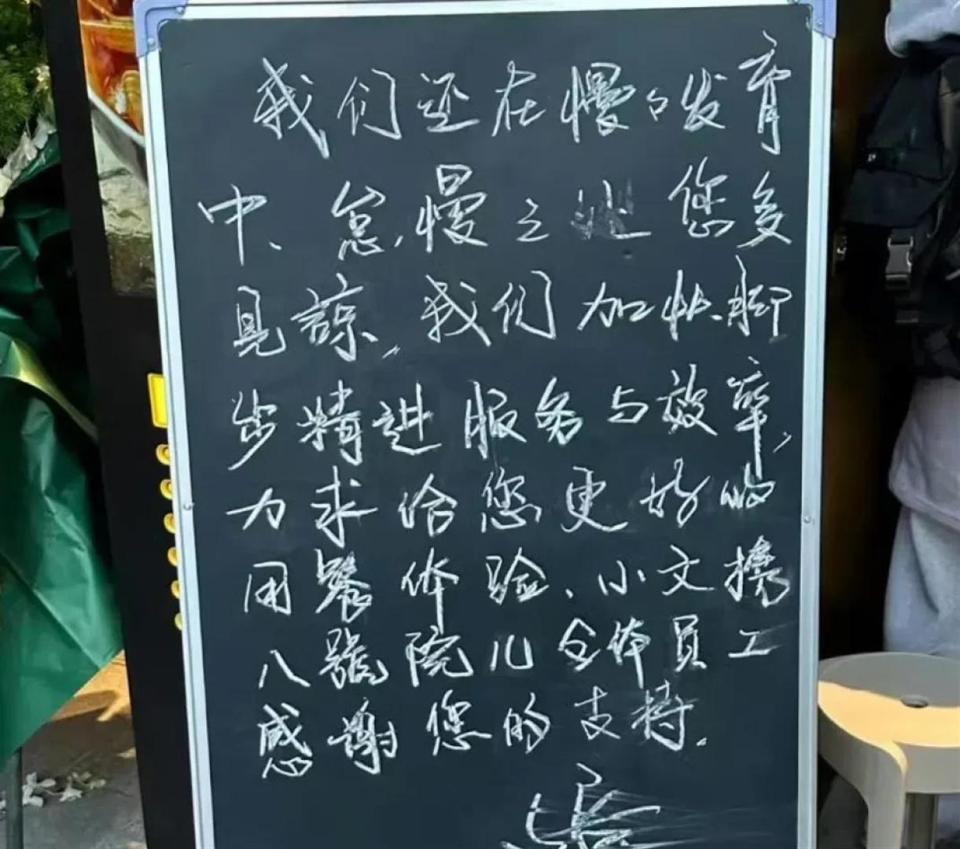 我们还在慢々发育
中、怠慢之处您多
見諒,我们加快脚
步精進服务与效率,
力求给您更好的
用餐体验、小文携
八號院儿全体員工
感謝您的支持.